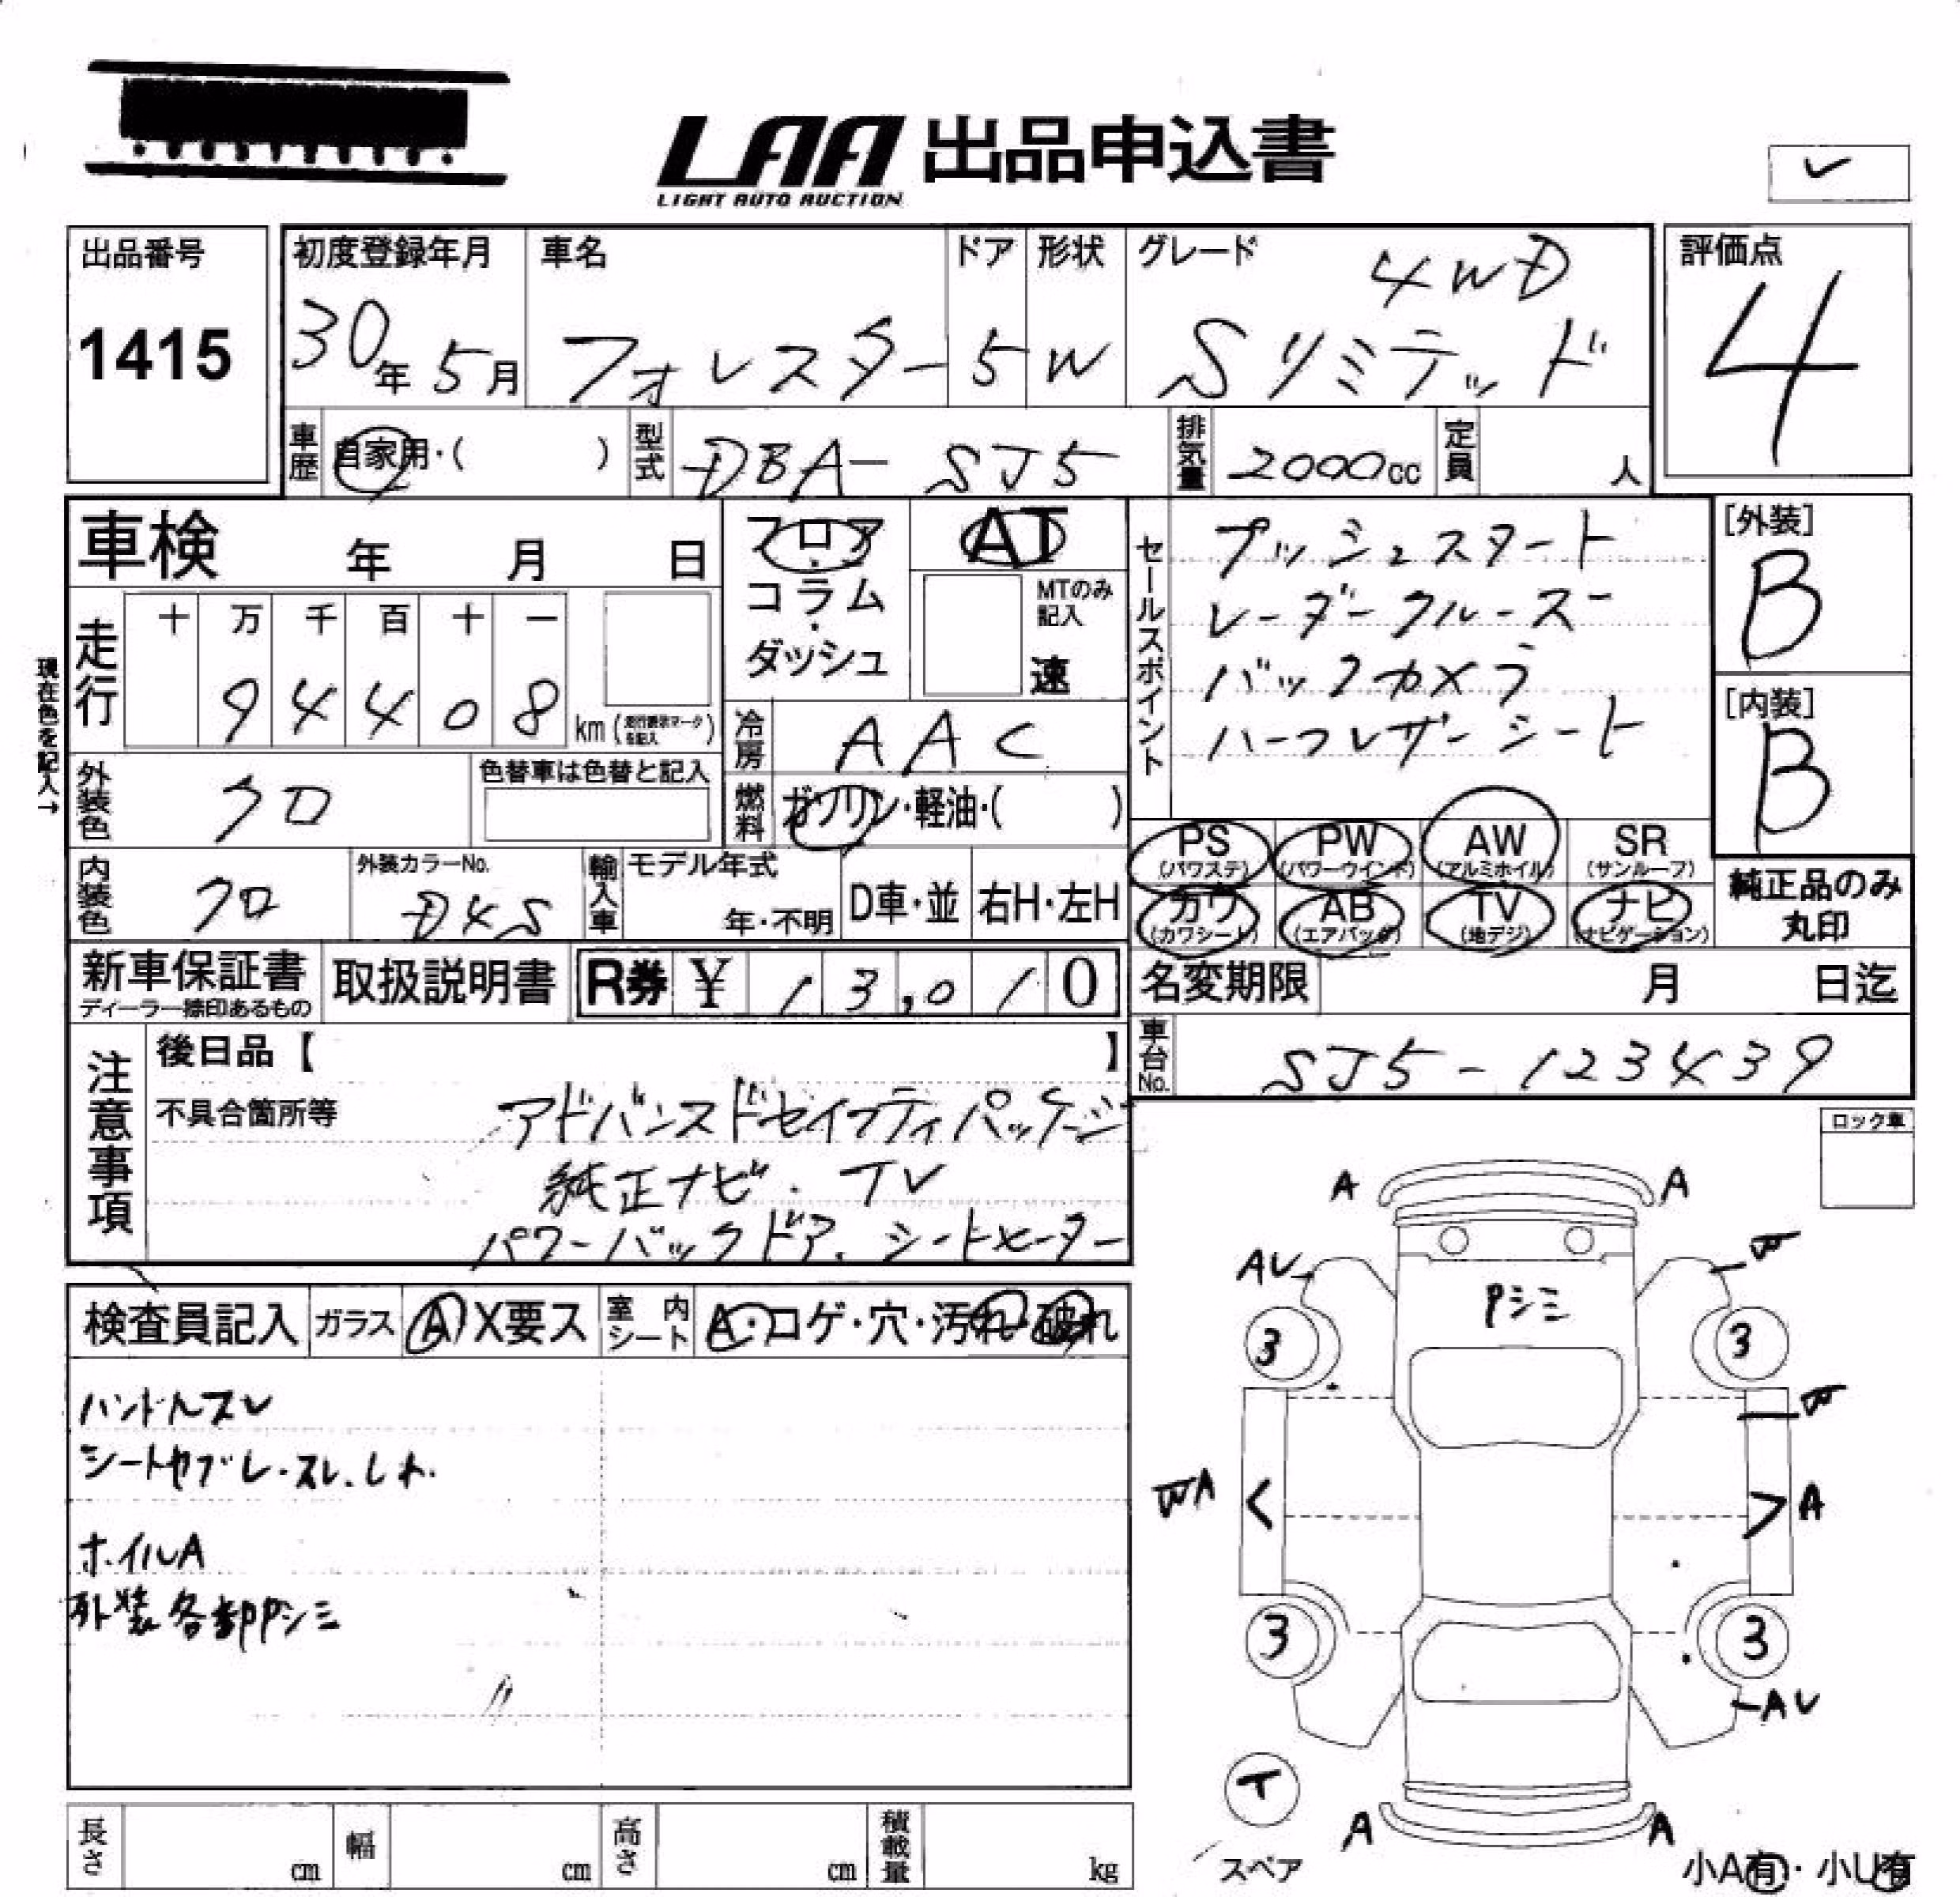 LAA 出品申込書
LIGHT AUTO AUCTION
出品番号 1415
初度登録年月 30年 5月
車名 フォレスター
ドア 5
形状 W
グレード 4WD
Sリミテッド
評価点 4
車歴 自家用・( )
型式 DBA-SJ5
排気量 2000cc
定員 人
車検 年 月 日
フロア・コラム・ダッシュ
AT
MTのみ記入
速
セールスポイント
プッシュスタート
レーダークルーズ
バックカメラ
ハーフレザーシート
[外装] B
[内装] B
現在色を記入→
走行 十 万 千 百 十 一
94408 km(走行表示マークを記入)
冷房 AAC
外装色 クロ
色替車は色替と記入
燃料 ガソリン・軽油・( )
PS(パワステ) PW(パワーウインド) AW(アルミホイル) SR(サンルーフ)
カワ(カワシート) AB(エアバッグ) TV(地デジ) ナビ(ナビゲーション)
純正品のみ丸印
内装色 クロ
外装カラーNo. D4S
輸入車 モデル年式 年・不明
D車・並 右H・左H
新車保証書
ディーラー捺印あるもの
取扱説明書
R券 ¥ 13,010
名変期限 月 日迄
車台No. SJ5-123439
注意事項
後日品【 】
不具合箇所等
アドバンスドセイフティパッケージ
純正ナビ・TV
パワーバックドア、シートヒーター
ロック車
検査員記入 ガラス A X要ス 室内シート A・コゲ・穴・汚れ・破れ
ハンドルスレ
シートヤブレ・スレ、しわ.
ホイルA
外装各部Pシミ
A A
AU W
Pシミ
3 3
W
WA A
3 3
AU
T
スペア
A A
小A有・小U有
長さ cm 幅 cm 高さ cm 積載量 kg